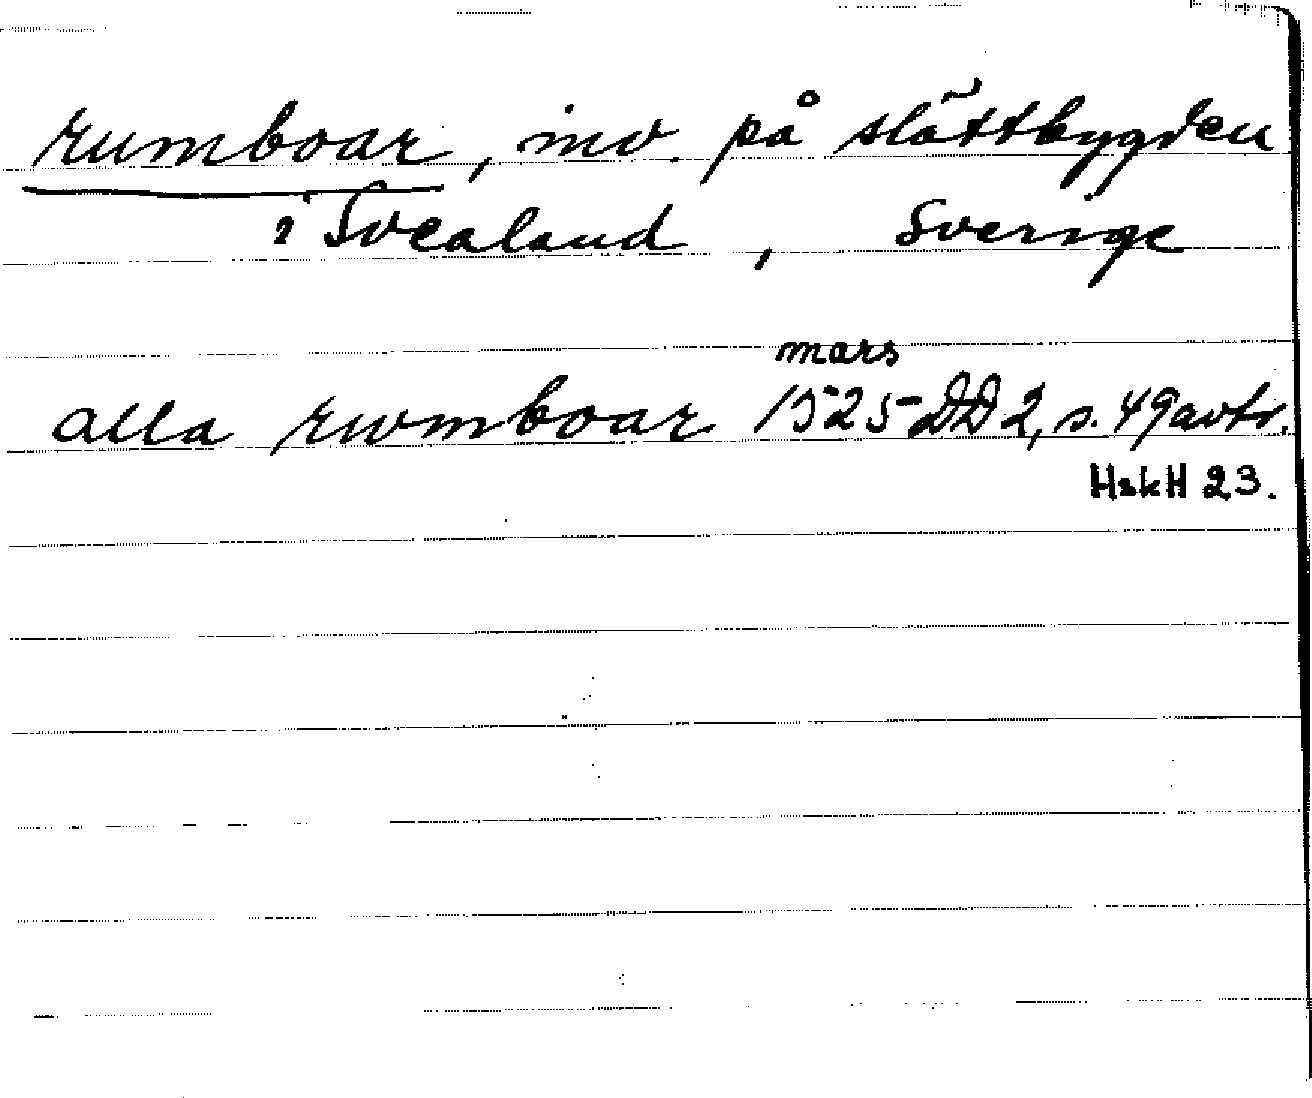 rumboar, inv. på slättbygden
i Svealand, Sverige
mars
alla rwmboar 1525 DD 2, s. 49 avtr.
HskH 23.